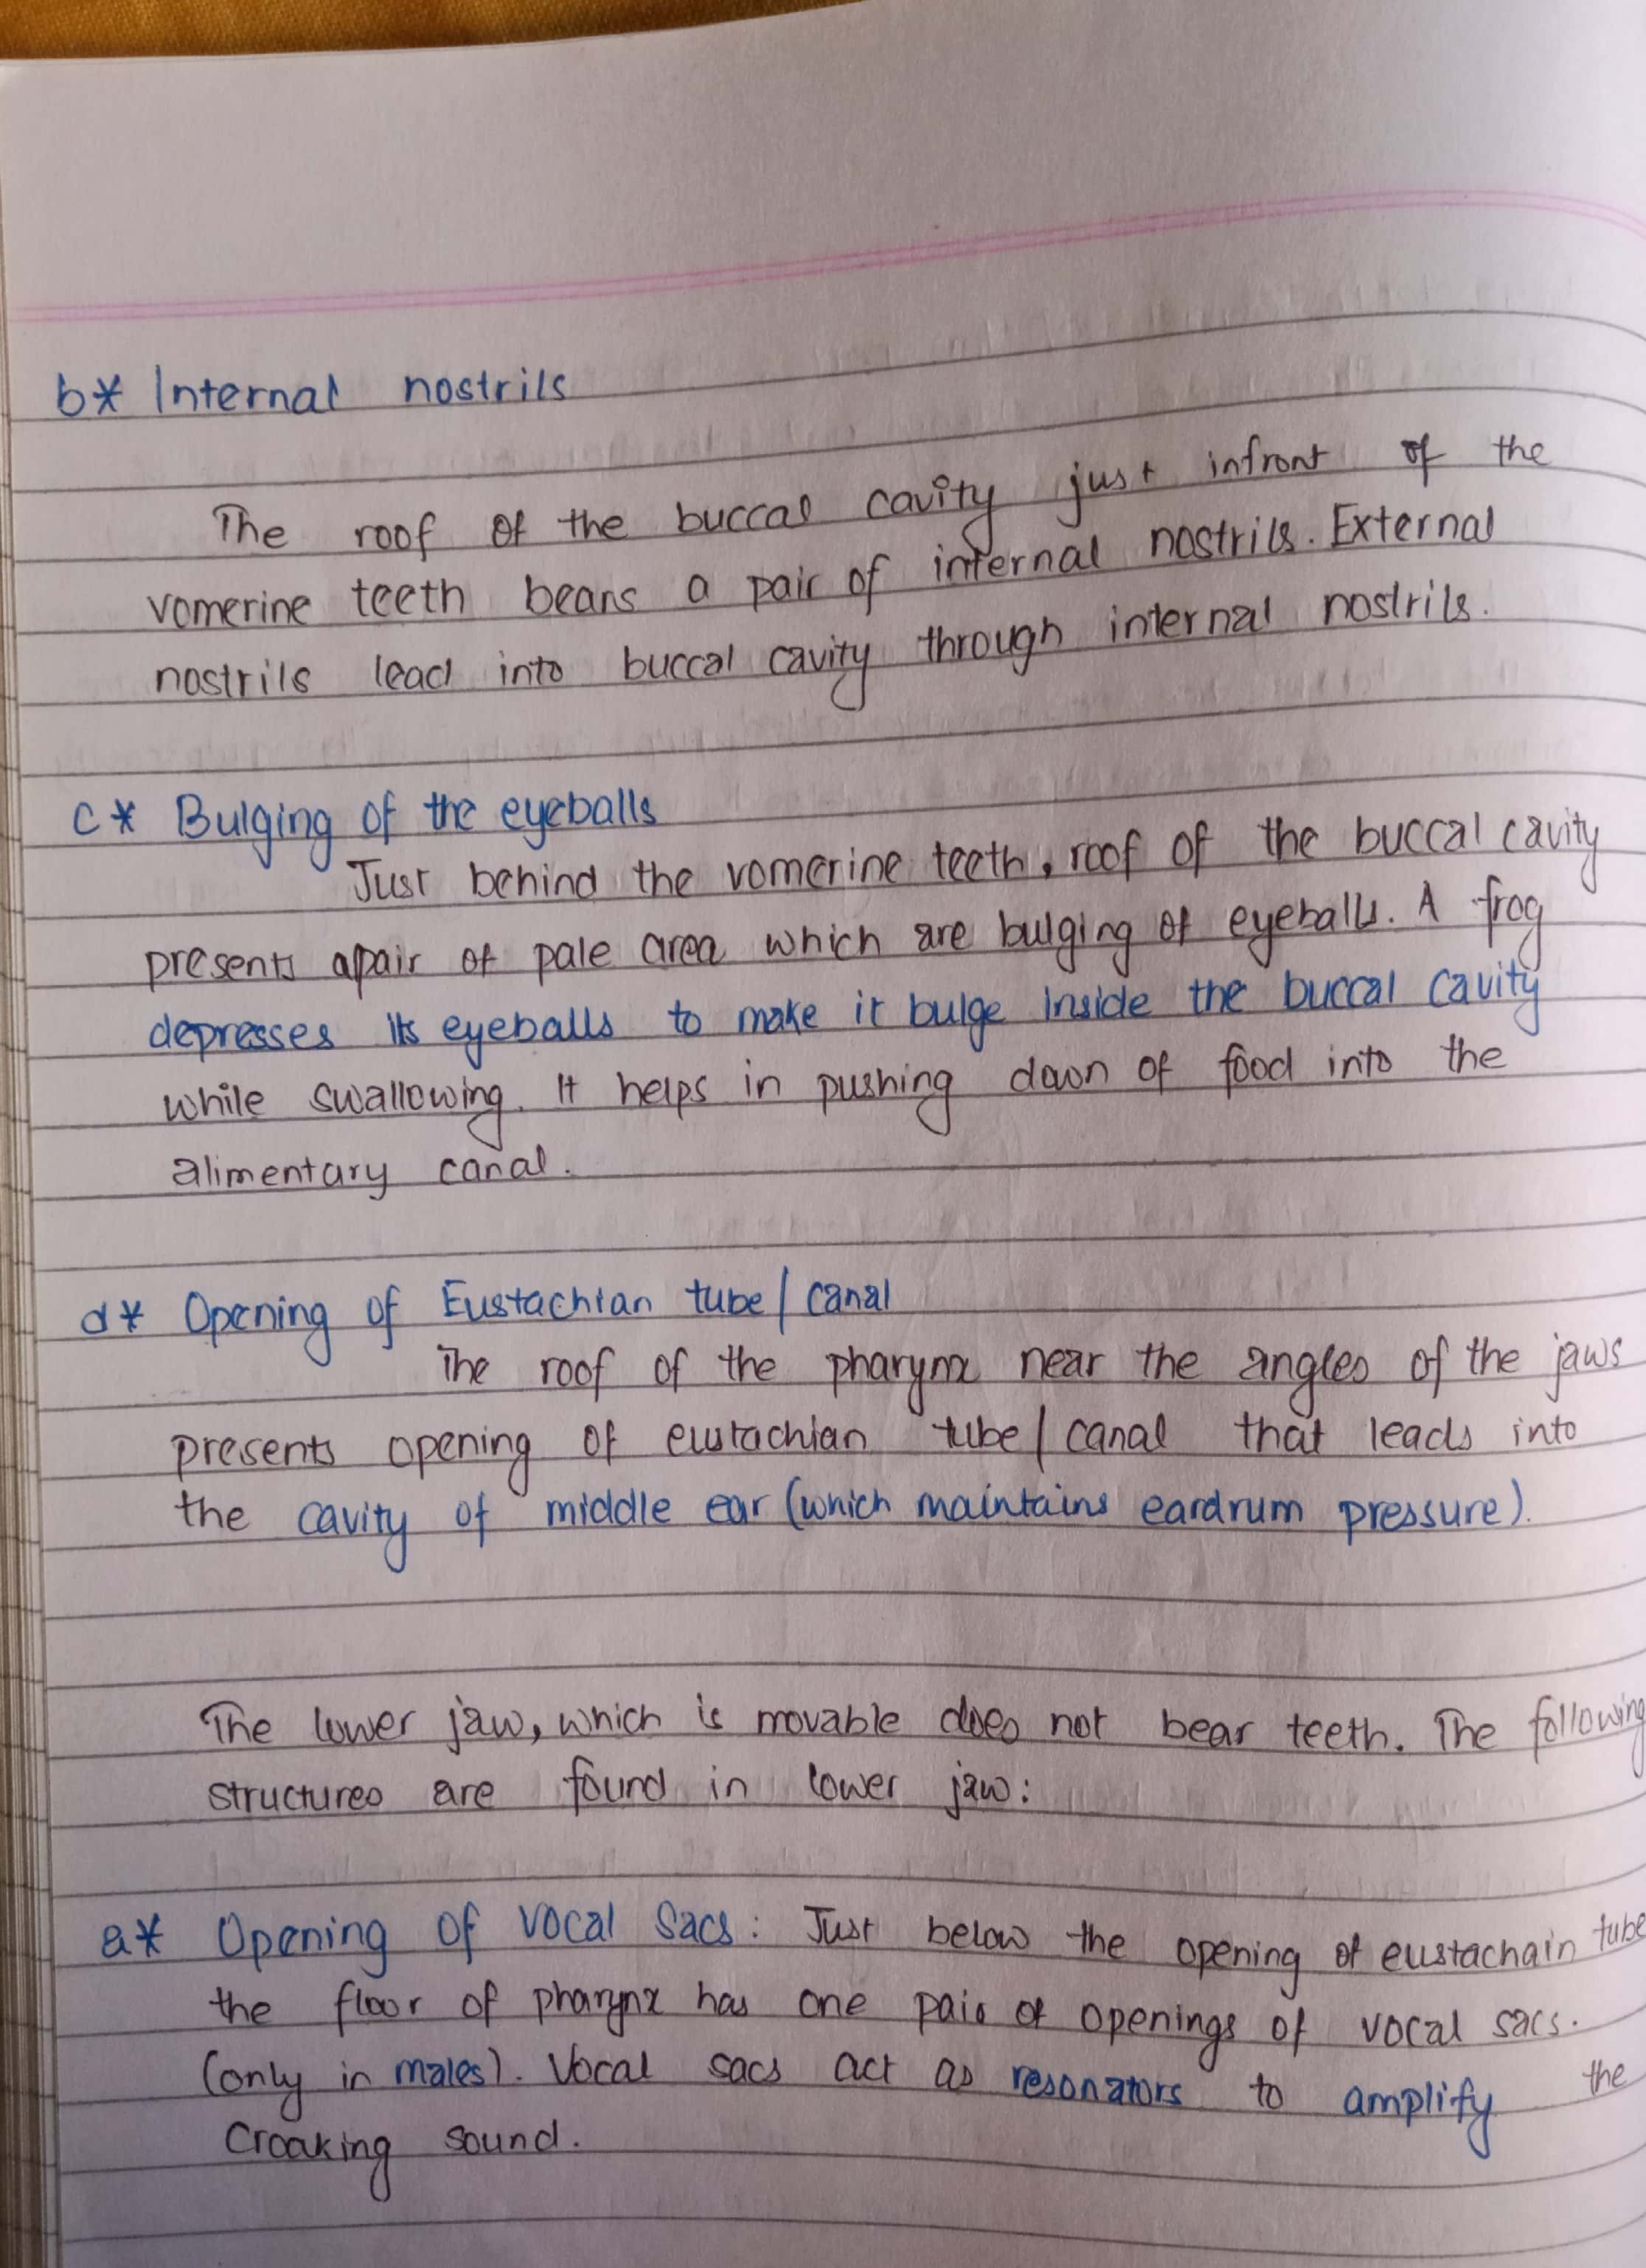 b* Internal nostrils
The roof of the buccal cavity just infront of the
vomerine teeth bears a pair of internal nostrils. External
nostrils lead into buccal cavity through internal nostrils.
c* Bulging of the eyeballs
Just behind the vomerine teeth, roof of the buccal cavity
presents apair of pale area which are bulging of eyeballs. A frog
depresses its eyeballs to make it bulge inside the buccal cavity
while swallowing. It helps in pushing down of food into the
alimentary canal.
d* Opening of Eustachian tube/canal
The roof of the pharynx near the angles of the jaws
presents opening of eustachian tube/canal that leads into
the cavity of middle ear (which maintains eardrum pressure).
The lower jaw, which is movable does not bear teeth. The following
structures are found in lower jaw:
a* Opening of vocal Sacs: Just below the opening of eustachain tube
the floor of pharynx has one pair of openings of vocal sacs.
(only in males). Vocal sacs act as resonators to amplify the
croaking sound.